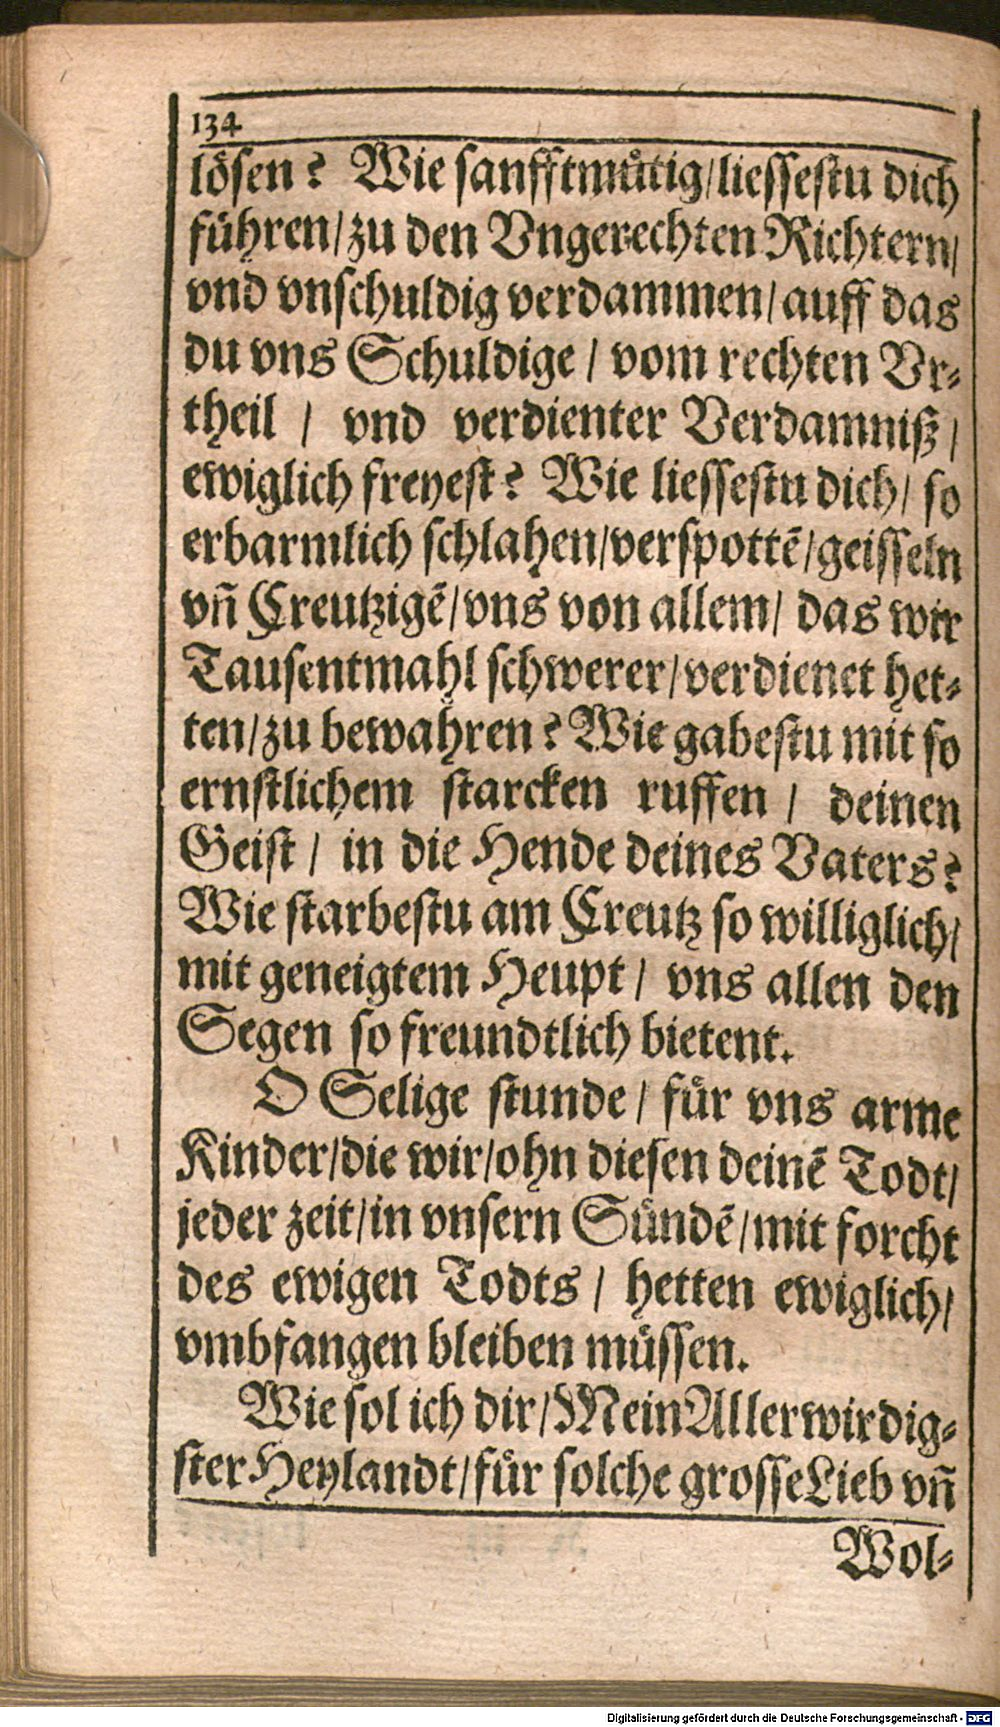 134
lösen? Wie sanfftmütig/liessestu dich
führen/zu den Vngerechten Richtern/
vnd vnschuldig verdammen/auff das
du vns Schuldige/vom rechten Vr-
theil/vnd verdienter Verdamniß/
ewiglich freyest? Wie liessestu dich/so
erbarmlich schlahen/verspottẽ/geisseln
vñ Creutzigẽ/vns von allem/das wir
Tausentmahl schwerer/verdienet het-
ten/zu bewahren? Wie gabestu mit so
ernstlichem starcken ruffen/deinen
Geist/in die Hende deines Vaters?
Wie starbestu am Creutz so williglich/
mit geneigtem Heupt/vns allen den
Segen so freundtlich bietent.
O Selige stunde/für vns arme
Kinder/die wir/ohn diesen deinẽ Todt/
jeder zeit/in vnsern Sündẽ/mit forcht
des ewigen Todts/hetten ewiglich/
vmbfangen bleiben müssen.
Wie sol ich dir/Mein Allerwirdig-
ster Heylandt/für solche grosse Lieb vñ
Wol-
Digitalisierung gefördert durch die Deutsche Forschungsgemeinschaft - DFG